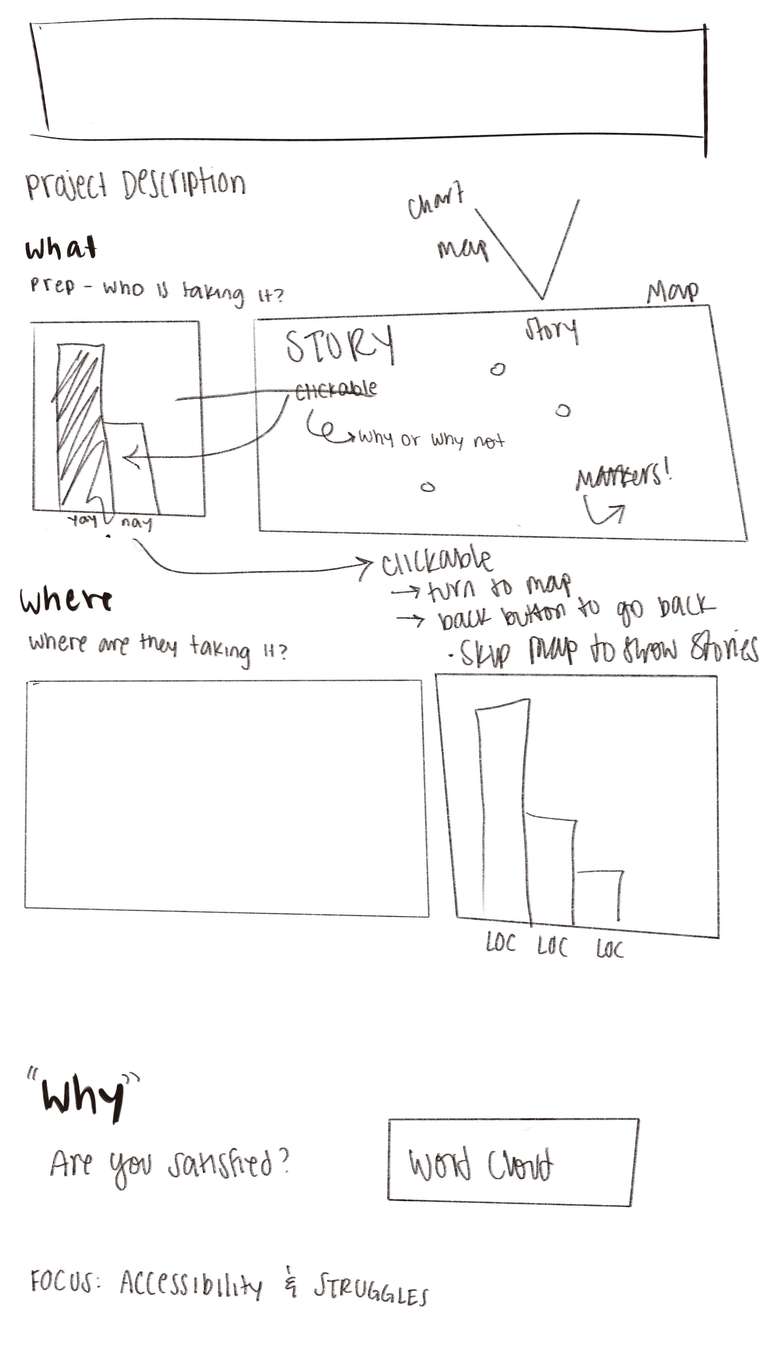 Project Description
chart
map
what
Prep - who is taking it?
Map
STORY
story
clickable
why or why not
Markers!
yay nay
clickable
→ turn to map
→ back button to go back
· Skip map to show stories
where
where are they taking it?
LOC LOC LOC
"Why"
Are you satisfied?
Word Cloud
FOCUS: Accessibility & STRUGGLES